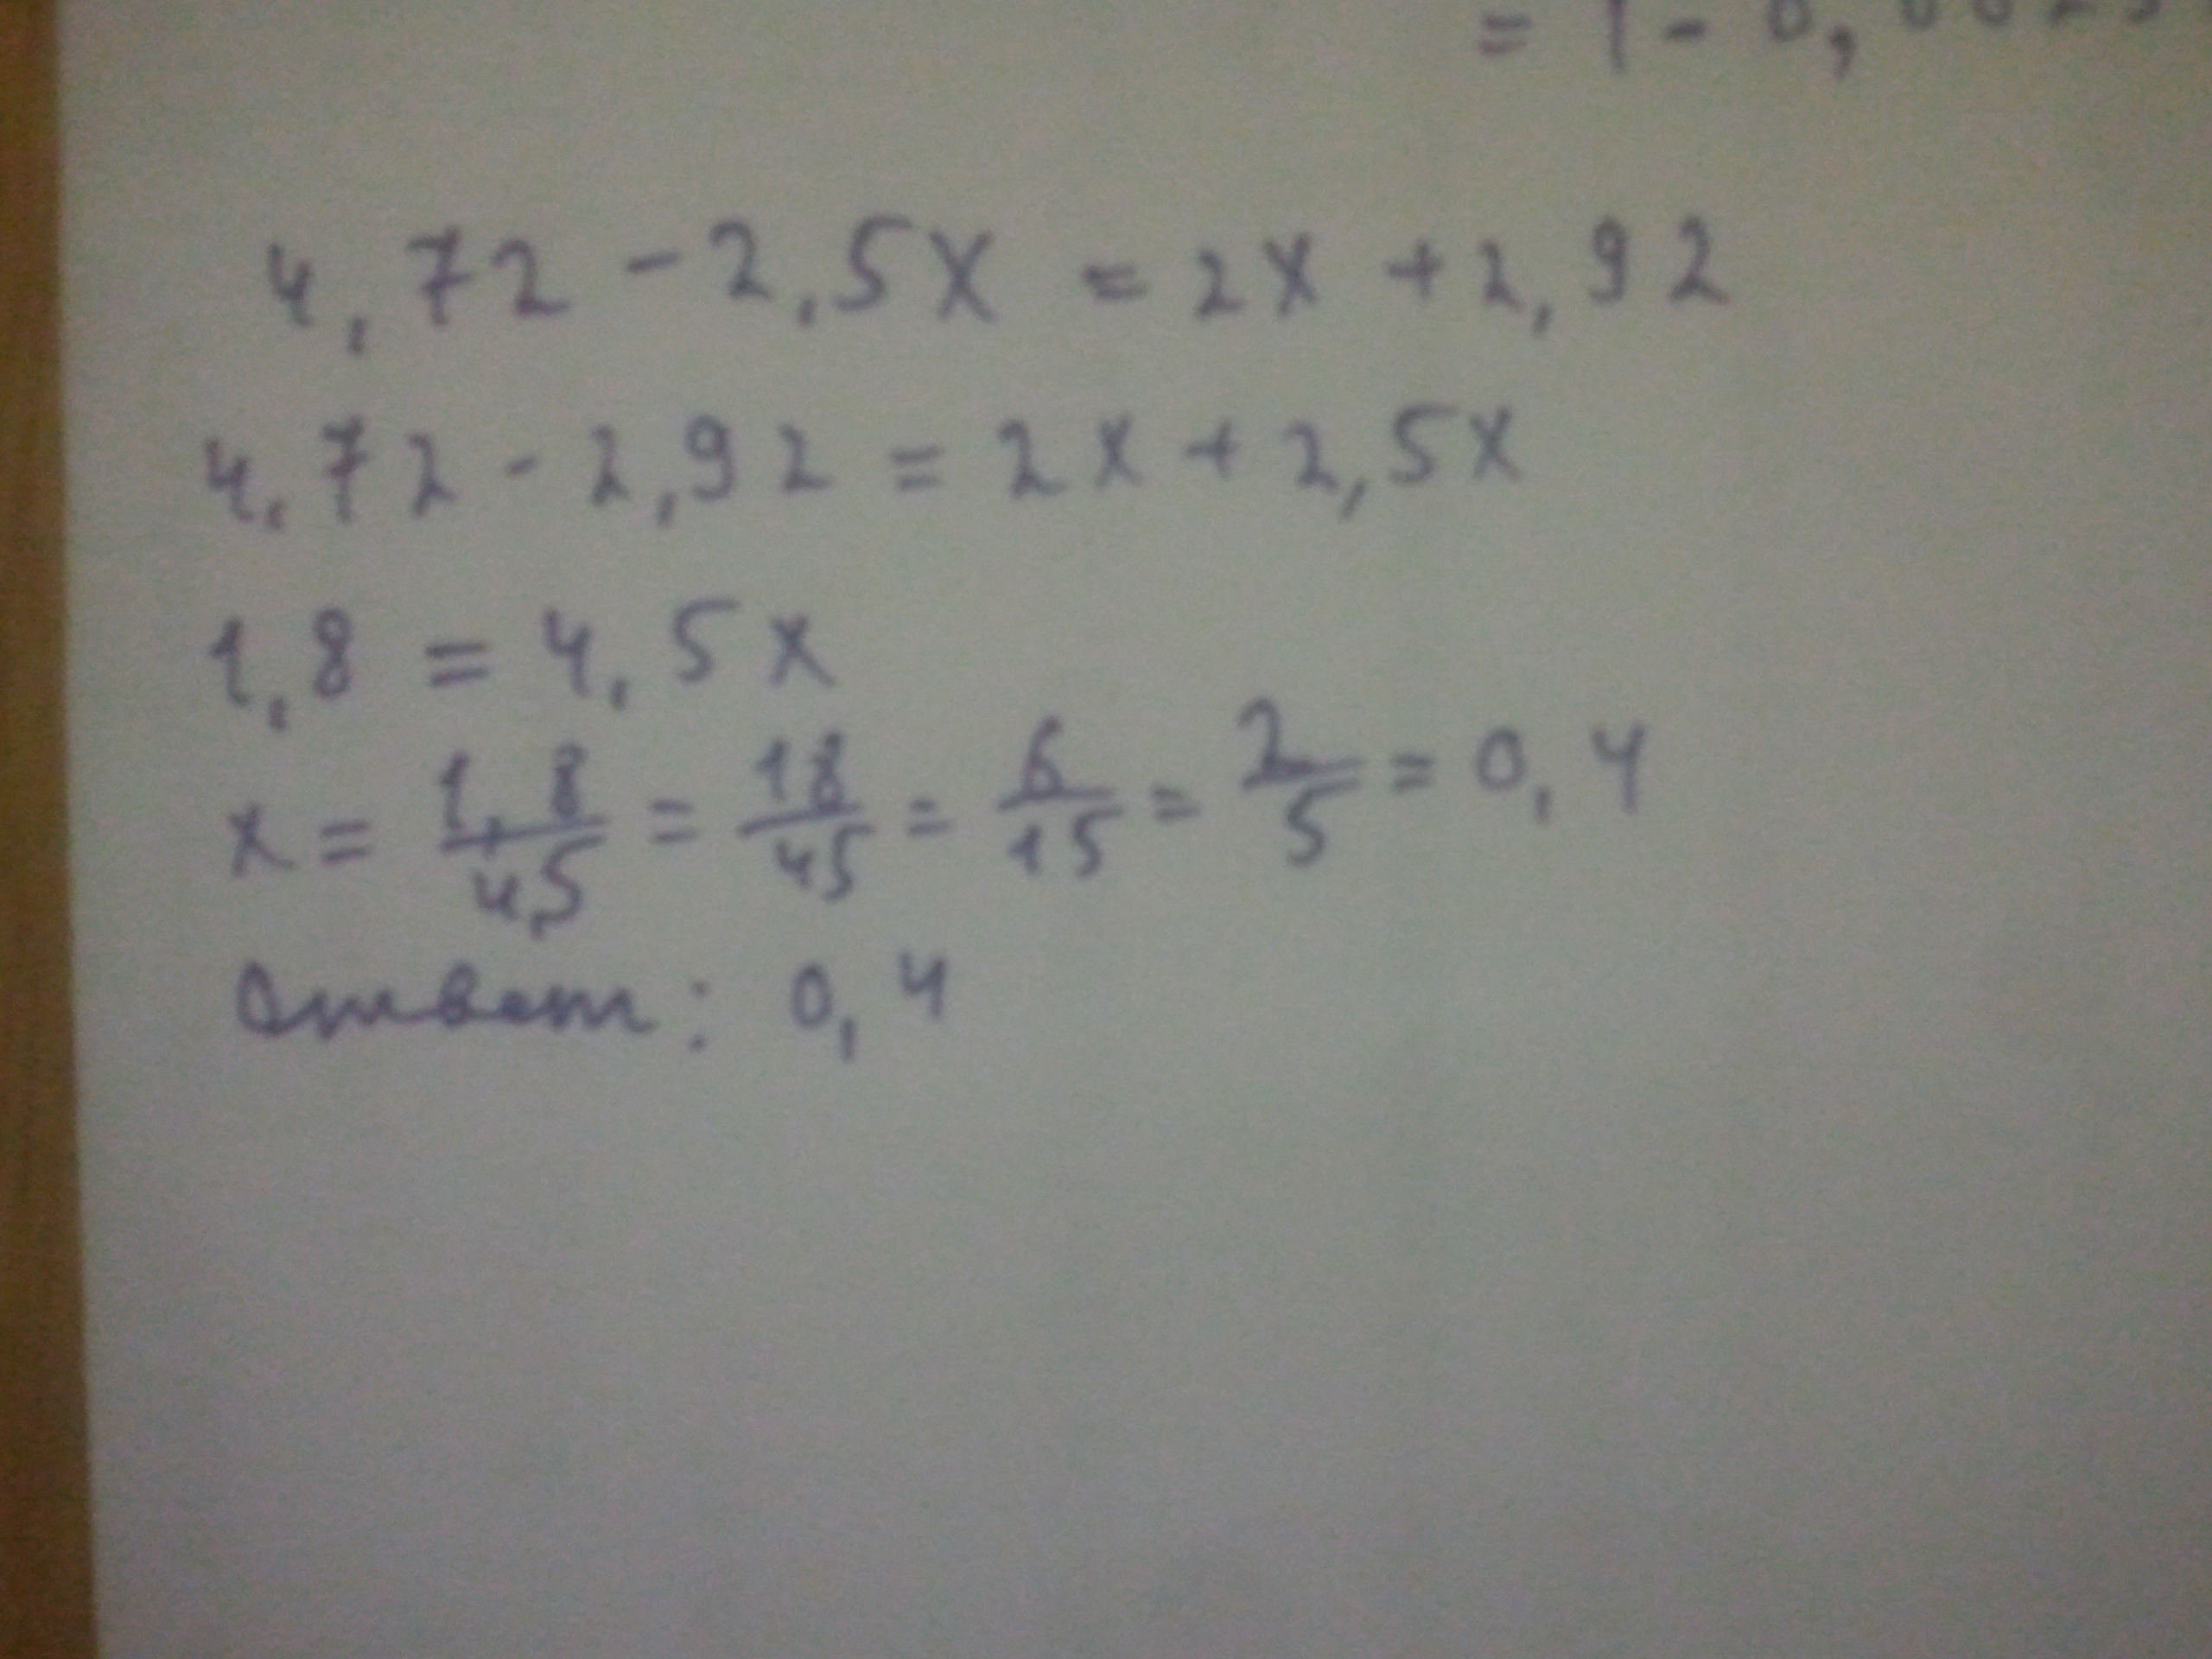 = 1 - 0,
4,72 - 2,5x = 2x + 2,92
4,72 - 2,92 = 2x + 2,5x
1,8 = 4,5x
x = 1,8/4,5 = 18/45 = 6/15 = 2/5 = 0,4
Ответ: 0,4